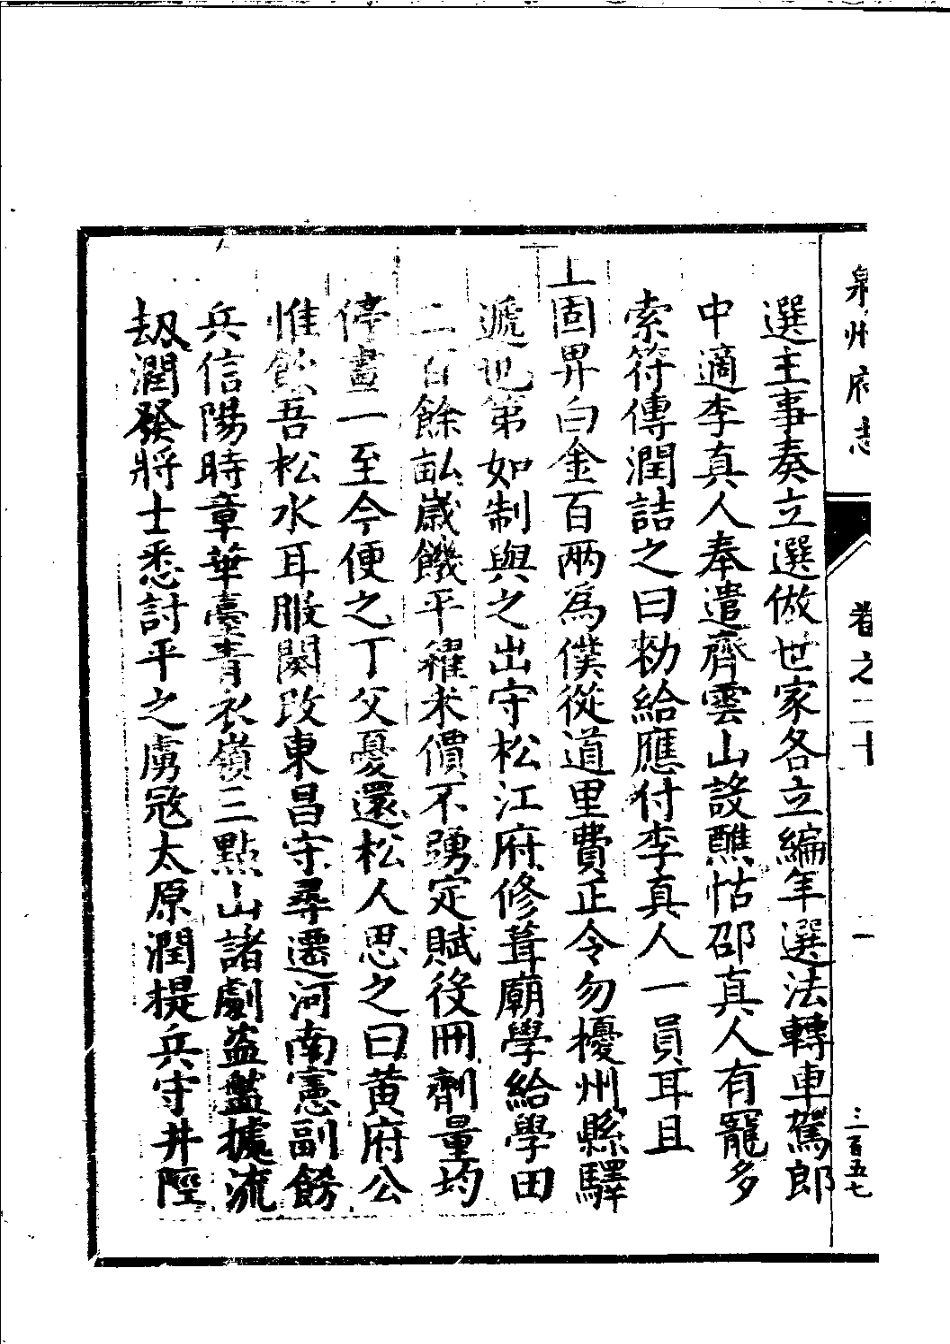 泉州府志 卷之二十 一 三百五七
選主事奏立選做世家各立編年選法轉車駕郎
中適李真人奉遣齊雲山設醮怙邵真人有寵多
索符傳潤詰之曰勑給應付李真人一員耳且
上固畀白金百兩為僕從道里費正令勿擾州縣驛
遞也第如制與之出守松江府修葺廟學給學田
二百餘畝歲饑平糴米價不踴定賦役冊劑量均
停畫一至今便之丁父憂還松人思之曰黃府公
惟飲吾松水耳服闋改東昌守尋遷河南憲副餝
兵信陽時章華臺青衣嶺三點山諸劇盜盤據流
刼潤發將士悉討平之虜寇太原潤提兵守井陘